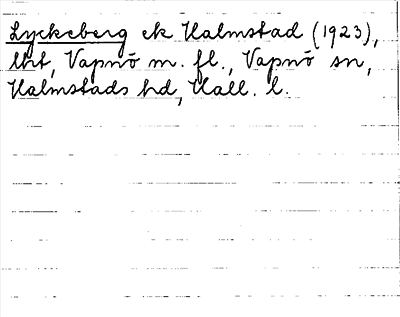 Lyckeberg ek Halmstad (1923),
lht, Vapnö m. fl., Vapnö sn,
Halmstads hd, Hall. l.